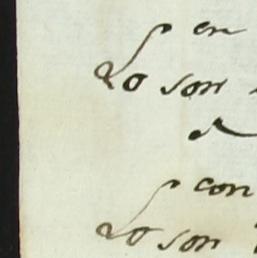 en
Lo son
con
Lo son